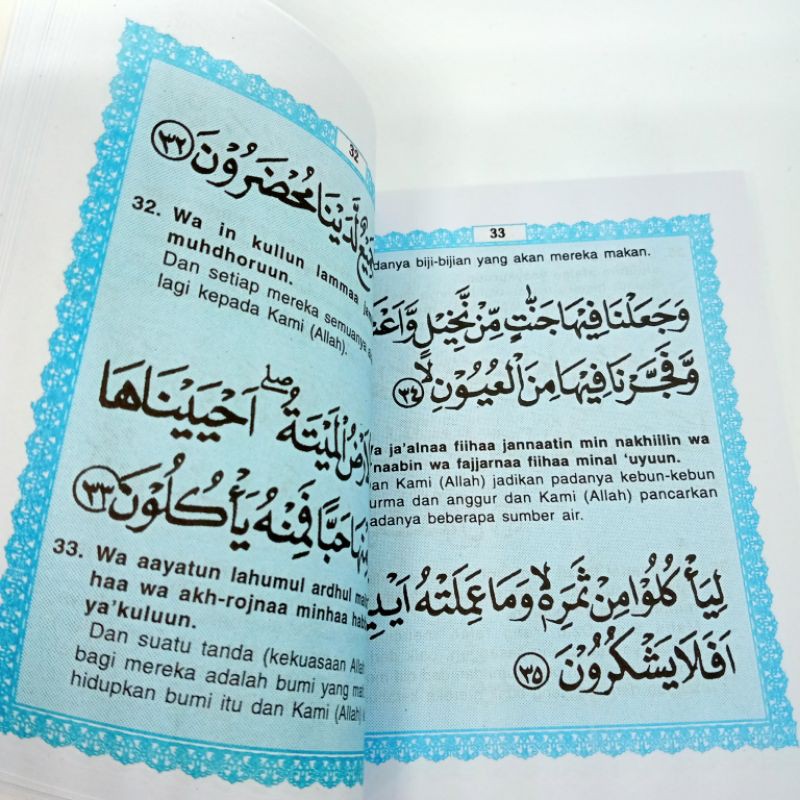 32
لَّدَيْنَا مُحْضَرُوْنَ ٣٢
32. Wa in kullun lammaa
muhdhoruun.
Dan setiap mereka semuanya
lagi kepada Kami (Allah).
الْمَيْتَةُ ۖ اَحْيَيْنَاهَا
حَبًّا فَمِنْهُ يَأْكُلُوْنَ ٣٣
33. Wa aayatun lahumul ardhul
haa wa akh-rojnaa minhaa
ya'kuluun.
Dan suatu tanda (kekuasaan
bagi mereka adalah bumi yang
hidupkan bumi itu dan Kami (Allah)
33
danya biji-bijian yang akan mereka makan.
وَجَعَلْنَا فِيْهَا جَنّٰتٍ مِّنْ نَّخِيْلٍ
وَّفَجَّرْنَا فِيْهَا مِنَ الْعُيُوْنِۙ ٣٤
a ja'alnaa fiihaa jannaatin min nakhiilin wa
'naabin wa fajjarnaa fiihaa minal 'uyuun.
an Kami (Allah) jadikan padanya kebun-kebun
urma dan anggur dan Kami (Allah) pancarkan
adanya beberapa sumber air.
لِيَأْكُلُوْا مِنْ ثَمَرِهٖۙ وَمَا عَمِلَتْهُ
اَفَلَا يَشْكُرُوْنَ ٣٥